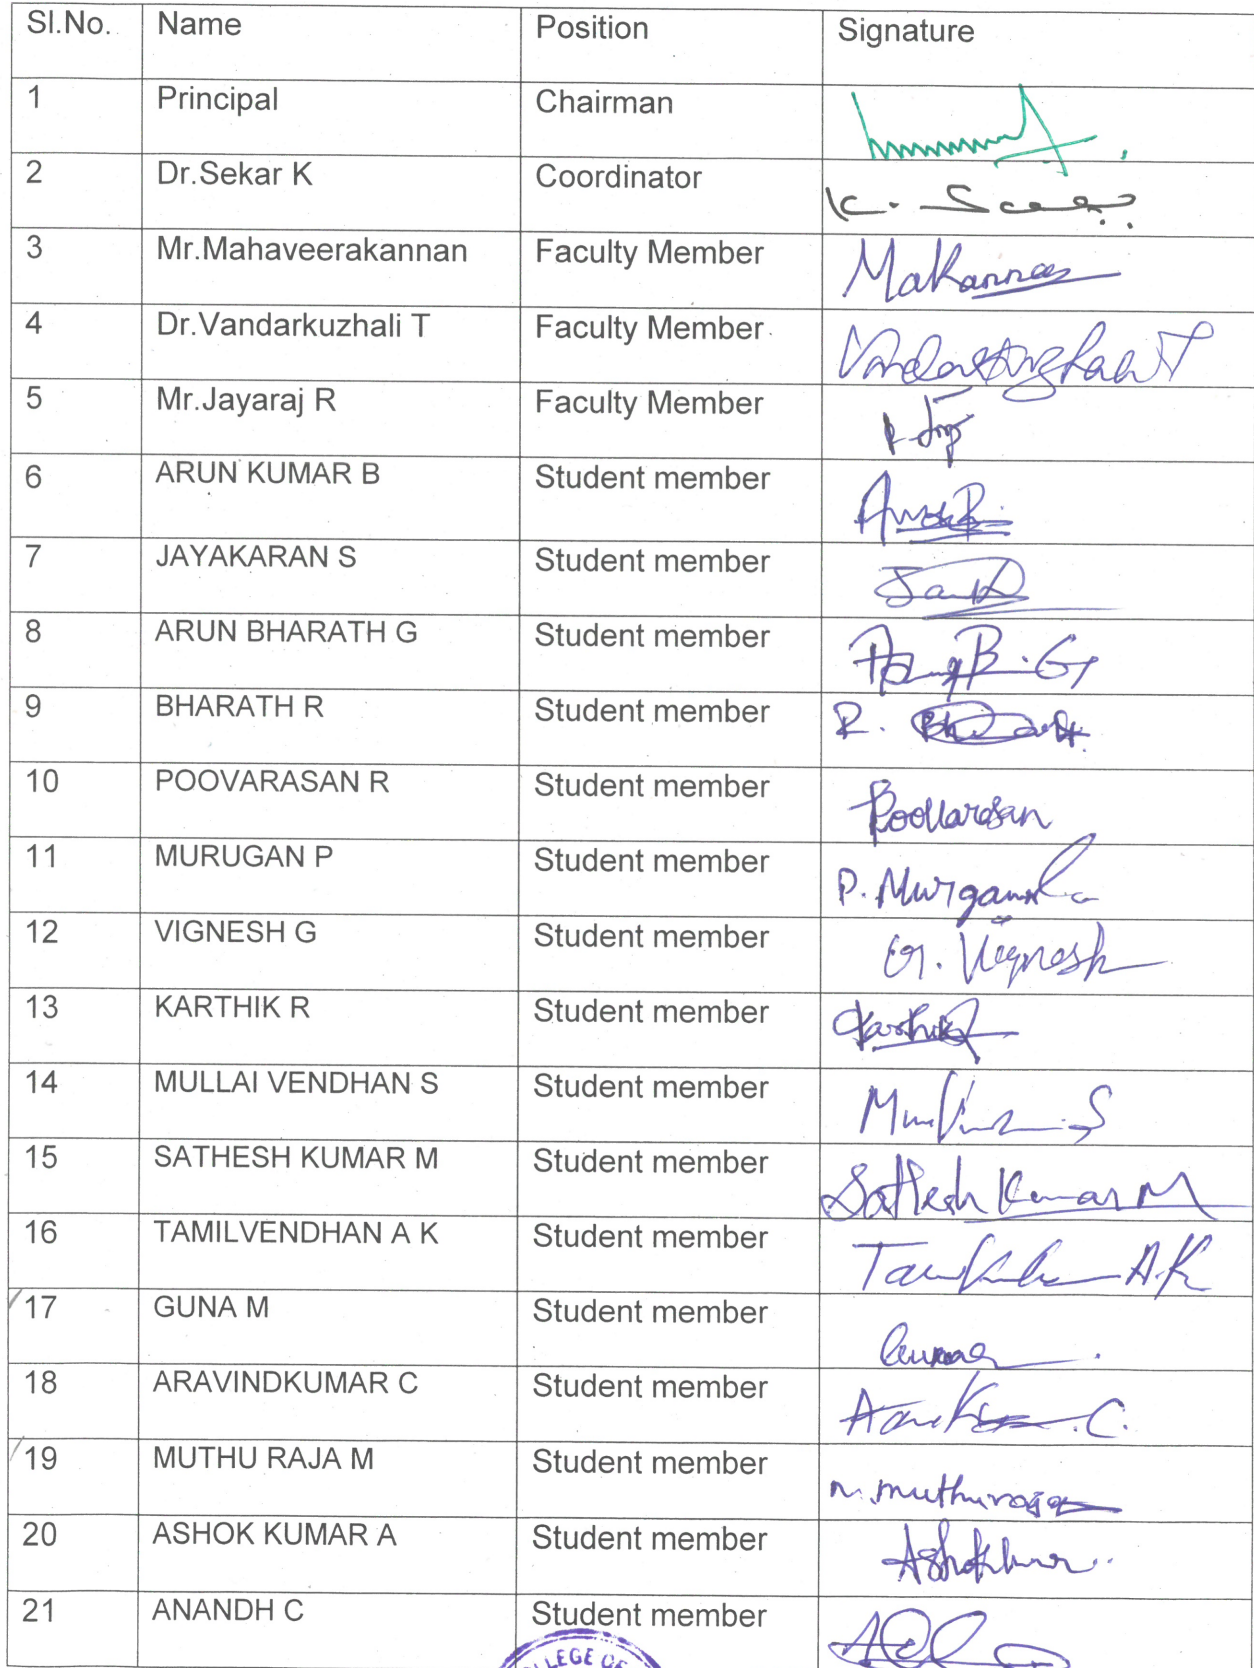 Sl.No. Name Position Signature
1 Principal Chairman
2 Dr.Sekar K Coordinator K.
3 Mr.Mahaveerakannan Faculty Member Makannan
4 Dr.Vandarkuzhali T Faculty Member
5 Mr.Jayaraj R Faculty Member
6 ARUN KUMAR B Student member
7 JAYAKARAN S Student member
8 ARUN BHARATH G Student member
9 BHARATH R Student member R.
10 POOVARASAN R Student member Poovarasan
11 MURUGAN P Student member P. Murgan
12 VIGNESH G Student member G. Vignesh
13 KARTHIK R Student member Karthik
14 MULLAI VENDHAN S Student member
15 SATHESH KUMAR M Student member Sathesh Kumar M
16 TAMILVENDHAN A K Student member A.K
17 GUNA M Student member Guna
18 ARAVINDKUMAR C Student member
19 MUTHU RAJA M Student member M. muthuraja
20 ASHOK KUMAR A Student member
21 ANANDH C Student member
LLEGE OF